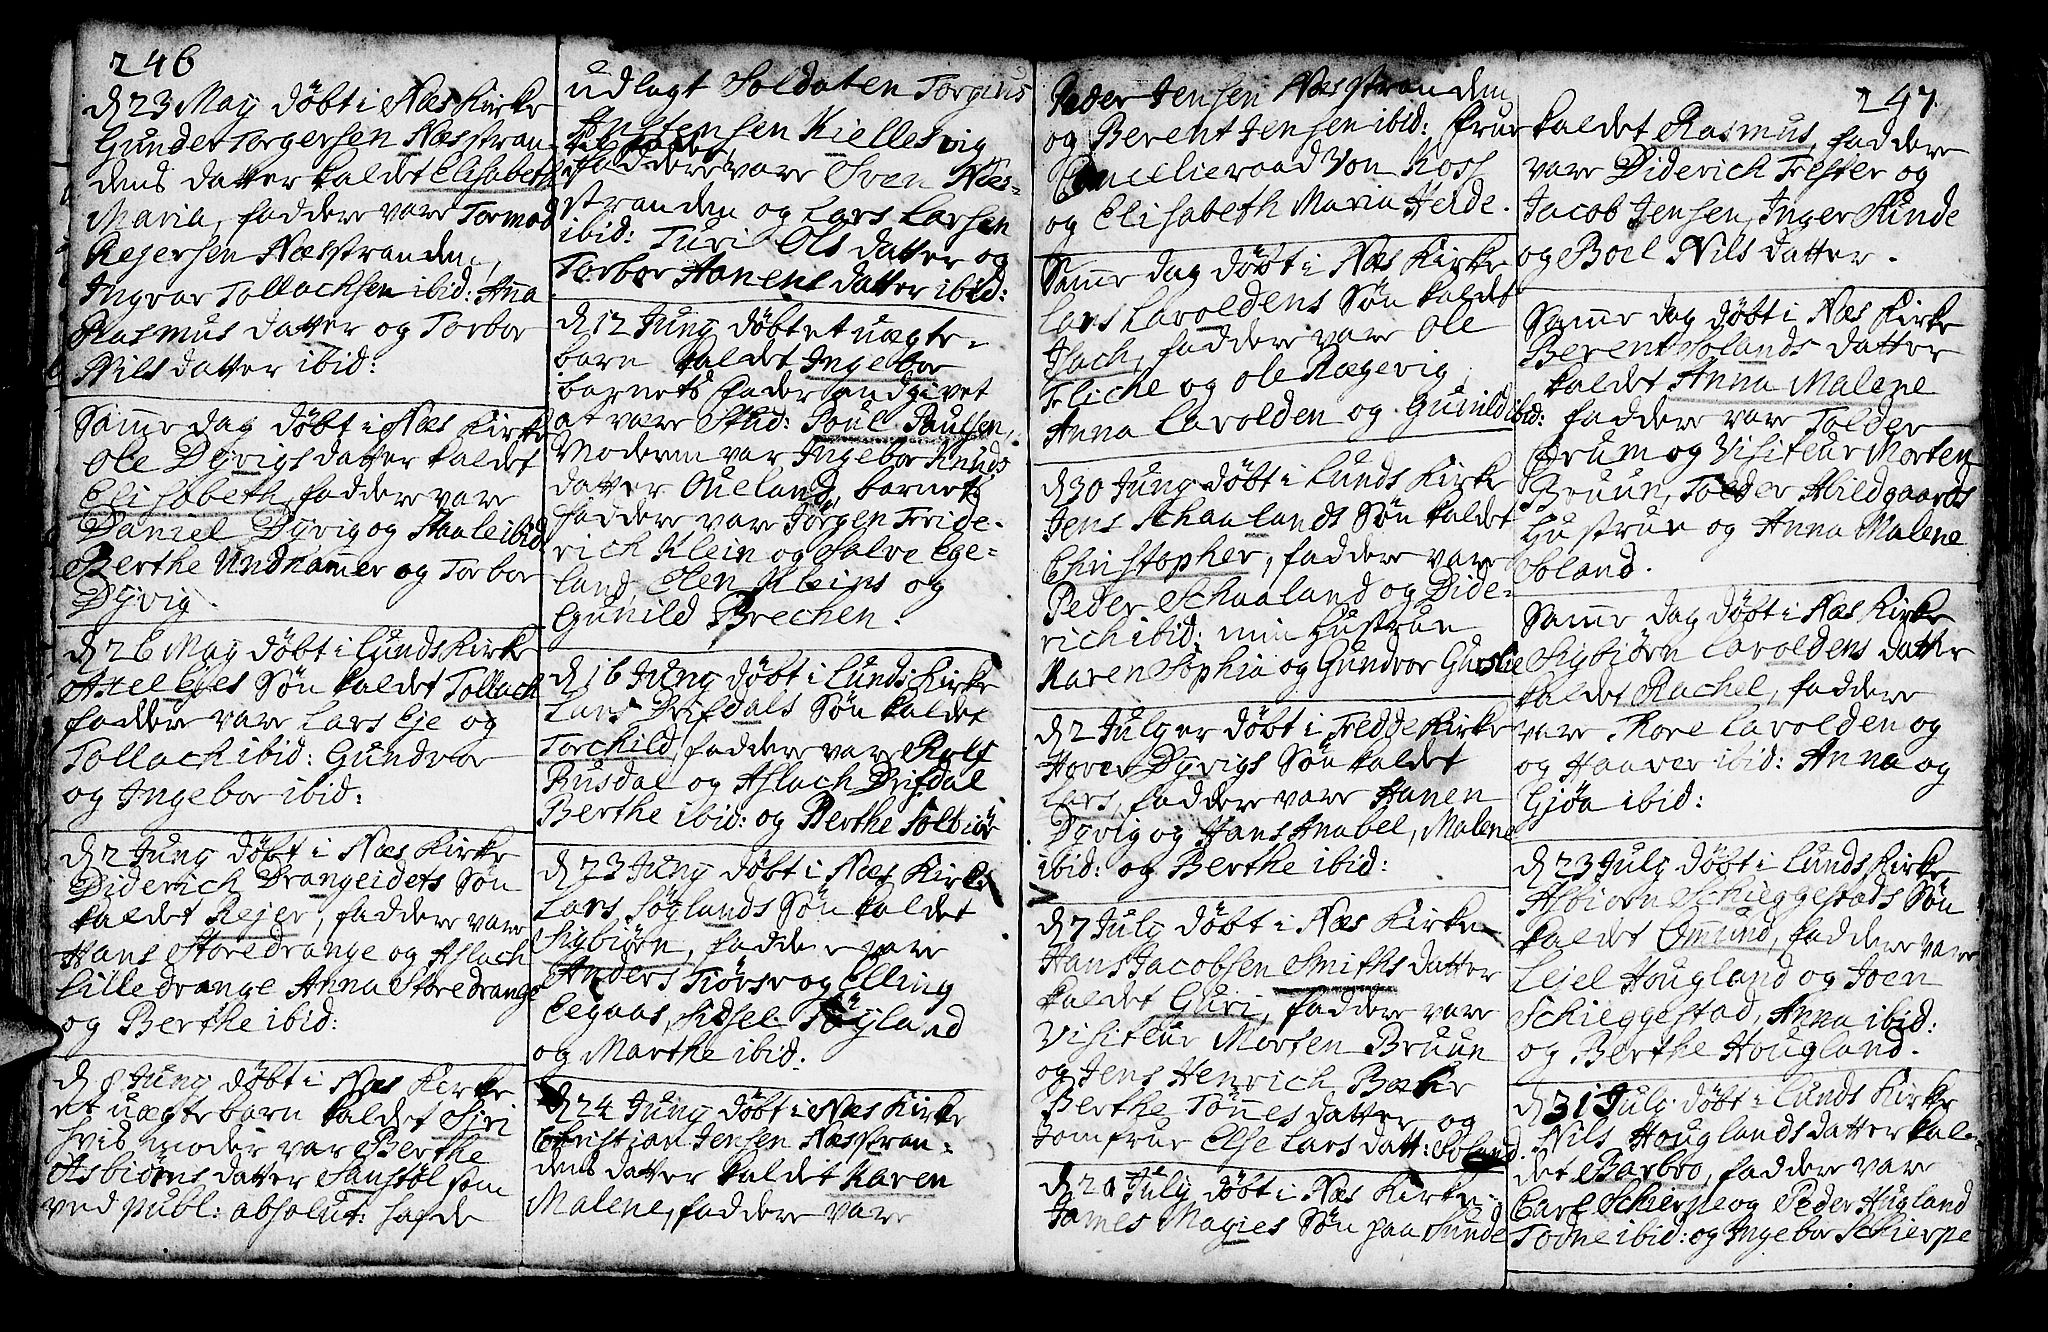 246
d 23 May döbt i Næs Kirke
Gunder Torgersen Næsstran-
dens datter kaldet Elisabeth
Maria, faddere vare Tormod
Rejersen Næsstranden,
Ingvar Tollachsen ibid: Aña
Rasmus datter og Torbor
Nils datter ibid:
Sam̃e dag döbt i Næs Kirke
Ole Dyvigs datter kaldet
Elisabeth, faddere vare
Daniel Dyvig og Staale ibid
Berthe Undham̃er og Torbor
Dyvig.
d 26 May döbt i Lunds Kirke
Axel Ejes Sön kaldet Tollach
faddere vare Lars Eje og
Tollach ibid: Gundvor
og Ingebor ibid:
d 2 Juny döbt i Næs Kirke
Diderich Drangeidets Sön
kaldet Rejer, faddere vare
Hans Store drange og Aslach
Lille drange Anna Store drange
og Berthe ibid:
d 8 Juny döbt i Næs Kirke
et uægte barn kaldet Siri
hvis moder var Berthe
Asbiörns datter Sanstöl som
ved publ: absolut: hafde
udlagt Soldaten Torgius
Anstensen Kiellesvig
til fader,
faddere vare Sven Næs-
stranden og Lars Larsen
ibid: Turi Ols datter og
Torbor Hanens datter ibid:
d 12 Juny döbt et uægte-
barn kaldet Ingebor
barnets fader andgivet
at vare Stud: Poul Paulsen,
Moderen var Ingebor Knuds
datter Oueland, barnets
faddere vare Jörgen Fride-
rich Klein og Salve Ege-
land, Elen Kleins og
Gunild Brechen.
d 16 Juny döbt i Lunds Kirke
Lars Drifdals Sön kaldet
Torchild, faddere vare Rolf
Rusdal og Aslach Drifdal
Berthe ibid: og Berthe Solbiör
d 23 Juny döbt i Næs Kirke
Lars Söylands Sön kaldet
Sigbiörn, faddere vare
Anders Tiörsv og Elling
Eegaas, Sidsel Söyland
og Marthe ibid:
d 24 Juny döbt i Næs Kirke
Christjan Jensen Næsstran-
dens datter kaldet Karen
Malene, faddere vare
247.
Peder Jensen Næsstranden
og Berent Jensen ibid: Frue
Cancelieraad Von Koss
og Elisabeth Maria Heide.
Sam̃e dag döbt i Næs Kirke
Lars Lavoldens Sön kaldet
Isach, faddere vare Ole
Fliche og Ole Rægevig
Anna Lavolden og Gunild ibid:
d 30 Juny döbt i Lunds Kirke
Jens Schaalands Sön kaldet
Christopher, faddere vare
Peder Schaaland og Dide-
rich ibid: min Hustrue
Karen Sophia og Gundvor Guslie
d 2 July er döbt i Fedde Kirke
Hover Dyvigs Sön kaldet
Lars, faddere vare Hanen
Dyvig og Hans Anabel, Malene
ibid: og Berthe ibid:
d 7 July döbt i Næs Kirke
Hans Jacobsen Smiths datter
kaldet Guri, faddere vare
Visiteur Morten Bruun
og Jens Henrich Beher
Berthe Tönnes datter og
Jomfrue Else Lars datt: Soland.
d 20 July döbt i Næs Kirke
James Magies Sön paa Sunde
kaldet Rasmus, faddere
vare Diderich Fester og
Jacob Jensen, Inger Sunde
og Boel Nils datter.
Sam̃e dag döbt i Næs Kirke
Berent Solands datter
kaldet Anna Malene
faddere vare Tolder
Frum og Visiteur Morten
Bruun, Tolder Hildgaards
Hustrue og Anna Malene
Soland.
Sam̃e dag döbt i Næs Kirke
Sigbiörn Lavoldens datter
kaldet Rachel, faddere
vare Tore Lavolden og
og Haaver ibid: Anna og
Gjöa ibid:
d 23 July döbt i Lunds Kirke
Asbiörn Schieggestads Sön
kaldet Omund, faddere vare
Lejel Hougland og Joen
Schieggestad, Anna ibid:
og Berthe Hougland.
d 31 July döbt i Lunds Kirke
Nils Houglands datter kal-
det Barbro, faddere vare
Carl Schierpe og Peder Hugland
Todne ibid: og Ingebor Schierpe